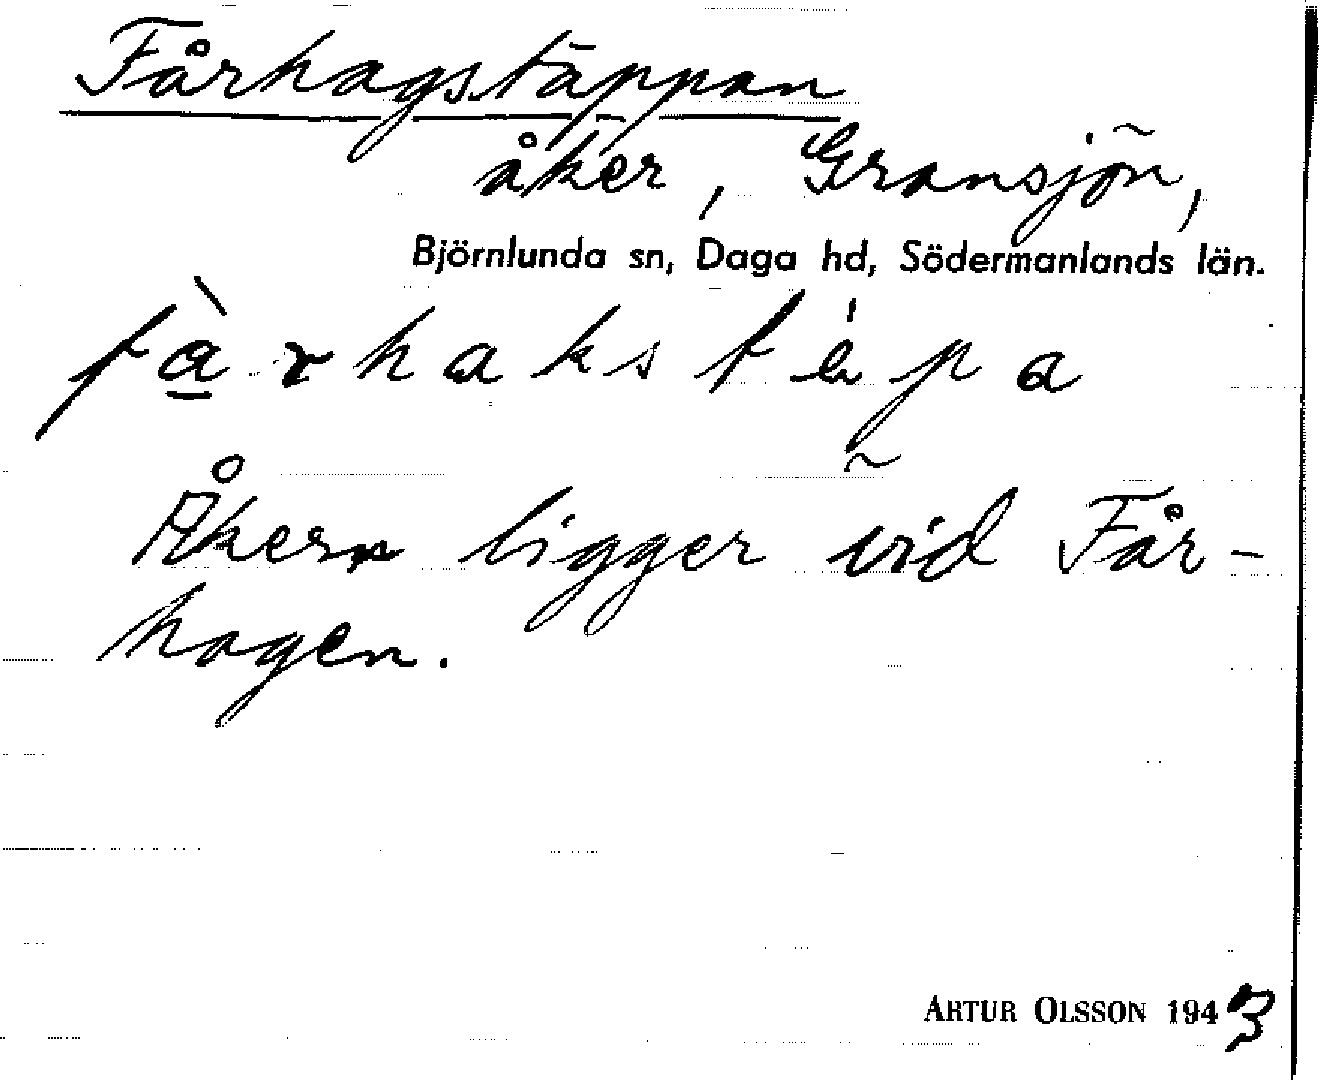 Fårhagstäppan
åker, Gransjön,
Björnlunda sn, Daga hd, Södermanlands län.
fà̲rhakstépa
Åkern ligger vid Får-
hagen.
ARTUR OLSSON 1943